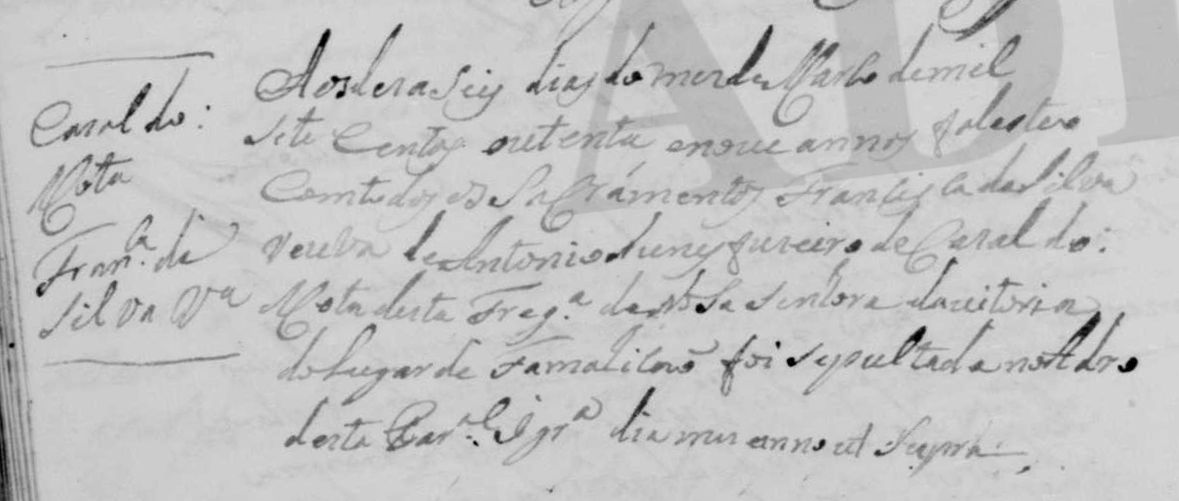 Casal do:
Mota
Fran.ca da
Silva Va
Aos desaseis dias do mes de Marco de mil
Sete Centos outenta e nove annos faleseo
Com todos os Sacramentos Francisca da Silva
veuva de Antonio Nunes de Casal do:
Mota desta Freg.a de Nosa Senhora da vitoria
do Lugar de Famalicaõ foi sepultada no Adro
desta Par.al Igr.a dia mes anno ut Supra.